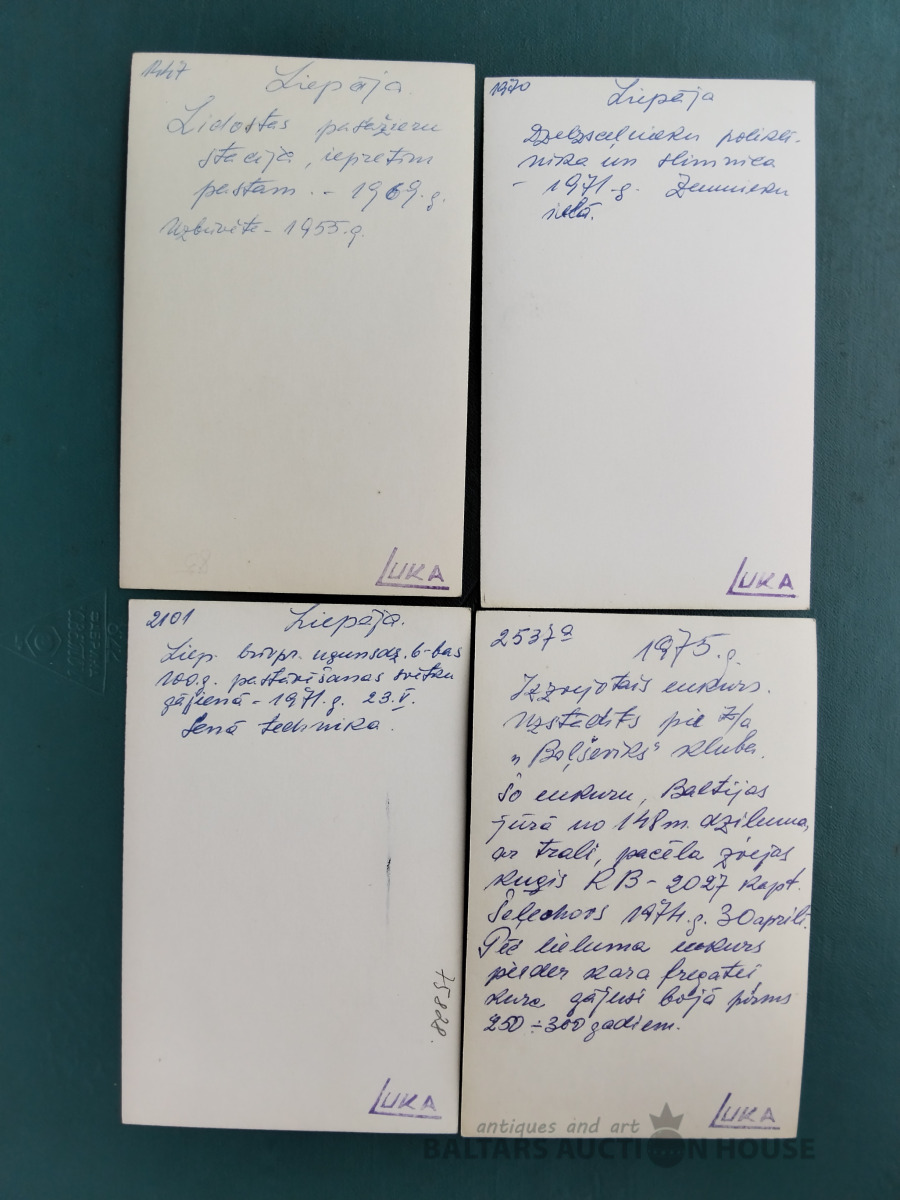 Liepāja.
Lidostas pasažieru
stacija, iepretim
pastam. - 1969.g.
Uzbūvēta - 1955.g.
LUKA
1970
Liepāja
Dzelzceļnieku polikli-
nika un slimnīca
- 1971.g. Zemnieku
ielā.
LUKA
2101
Liepāja.
Liep. brīvpr. ugunsdz. b-bas
100.g. pastāvēšanas svētku
gājienā - 1971.g. 23.V.
Senā technika.
75828.
LUKA
2537a
1975.g.
Izzvejotais enkurs.
Uzstādīts pie z/a
"Boļševiks" kluba.
Šo enkuru, Baltijas
jūrā no 148m. dziļuma,
ar trali, pacēla zvejas
kuģis RB-2027 kapt.
Šeļechovs 1974.g. 30 aprīlī.
Pēc lieluma enkurs
pieder kara fregatei
kura gājusi bojā pirms
250÷300 gadiem.
LUKA
antiques and art
BALTARS AUCTION HOUSE